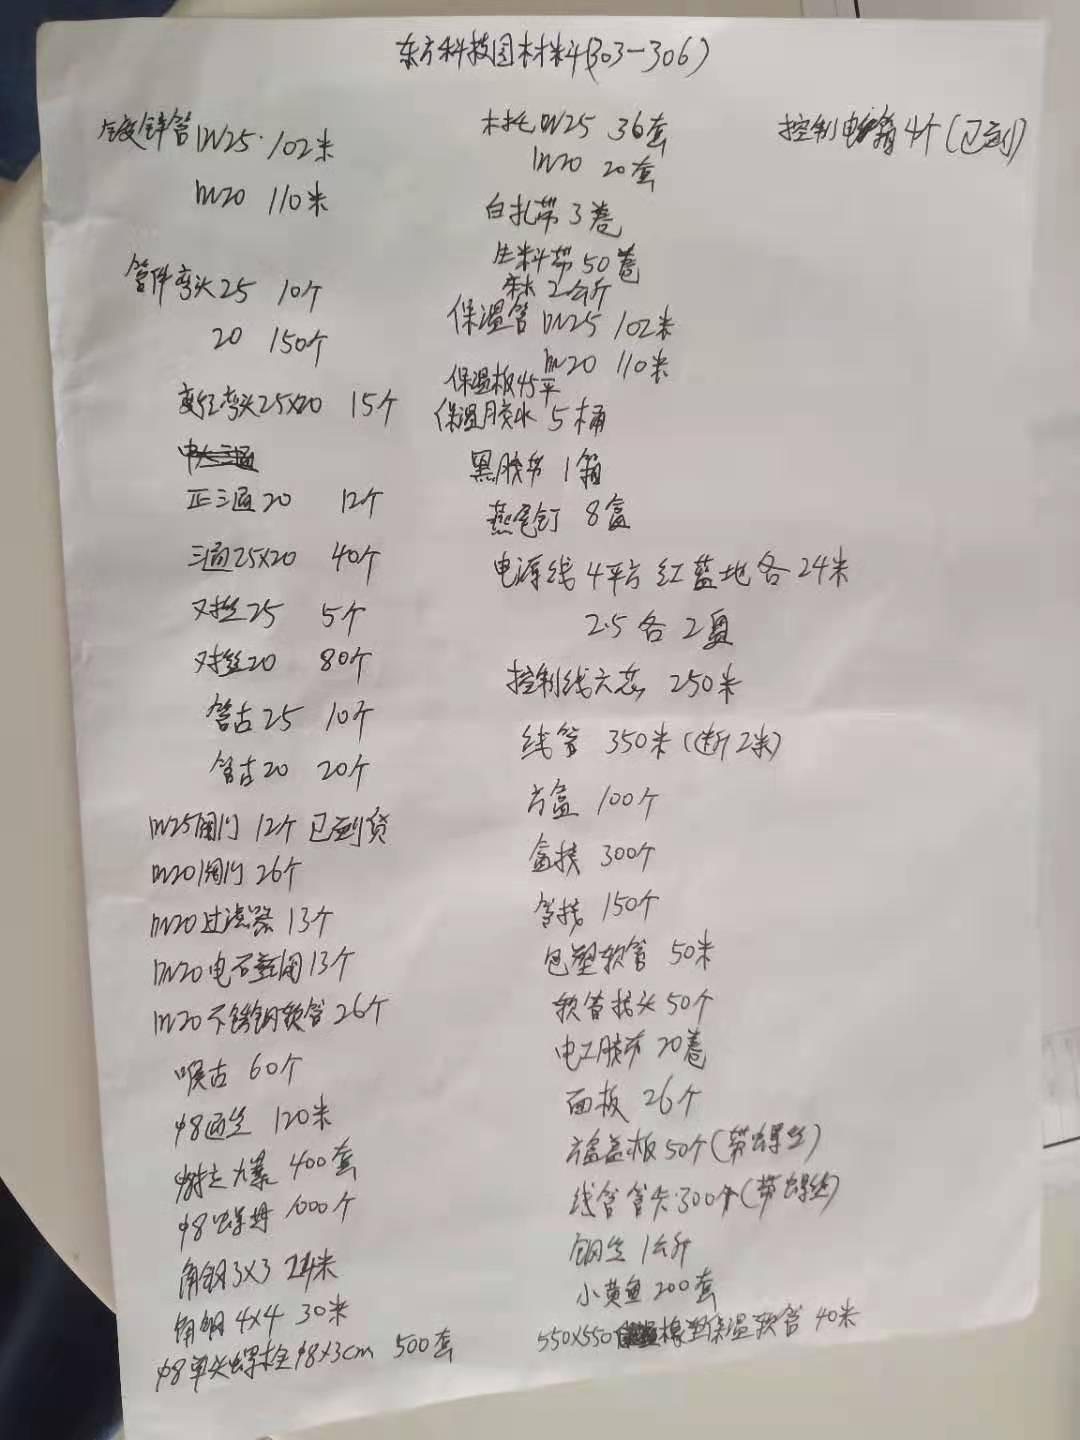 东方科技园材料(303-306)
镀锌管DN25 102米
DN20 110米
管件弯头25 10个
20 150个
变径弯头25X20 15个
正三通20 12个
三通25X20 40个
对丝25 5个
对丝20 80个
管古25 10个
管古20 20个
DN25阀门 12个 已到货
DN20阀门 26个
DN20过滤器 13个
DN20电磁阀 13个
DN20不锈钢软管 26个
喉古 60个
φ8通丝 120米
φ8拉爆 400套
φ8螺母 1000个
角钢3X3 24米
角钢4X4 30米
φ8单头螺栓φ8X3cm 500套
木托DN25 36套
DN20 20套
白扎带 3卷
生料带 50卷
麻 2公斤
保温管DN25 102米
DN20 110米
保温板45平
保温胶水 5桶
黑胶带 1箱
燕尾钉 8盒
电源线4平方红蓝地各24米
2.5各2盘
控制线六芯 250米
线管 350米(断2米)
方盒 100个
盒接 300个
管接 150个
包塑软管 50米
软管接头50个
电工胶布 20卷
面板 26个
方盒盖板50个(带螺丝)
线管管卡300个(带螺丝)
钢丝 1公斤
小黄鱼200套
550X550橡塑保温软管 40米
控制电箱4个(已到)